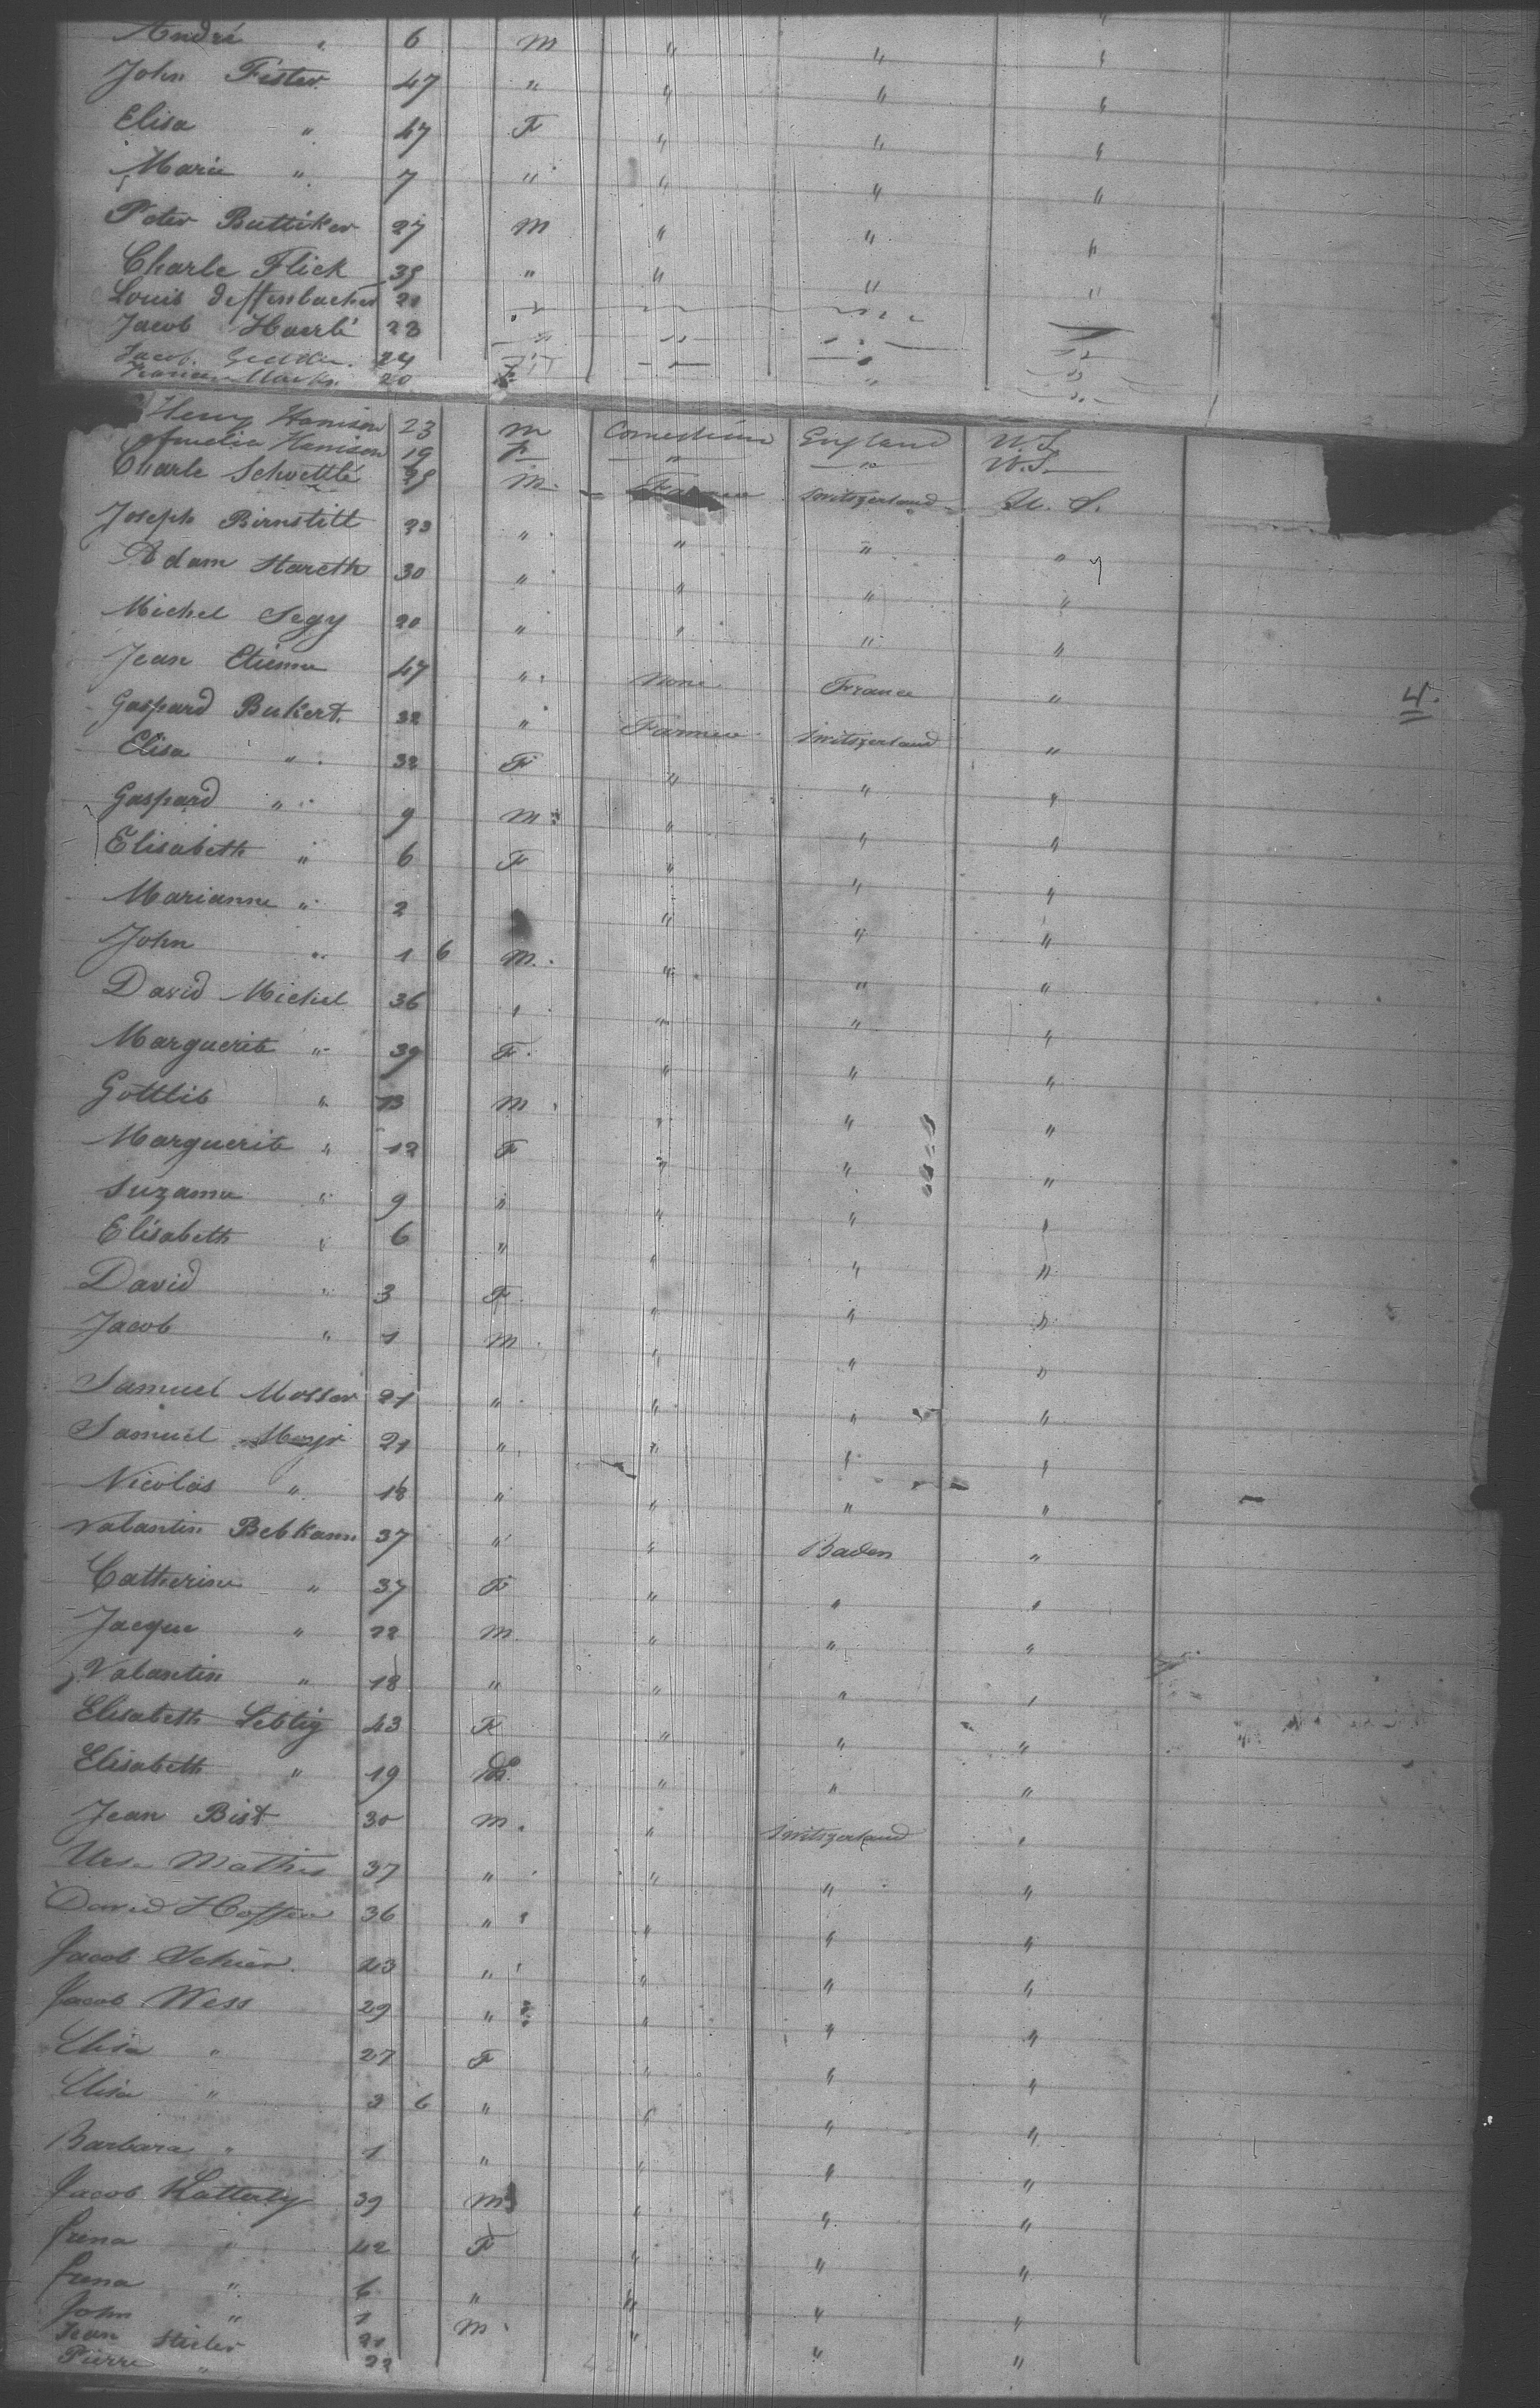 André " 6 M " " "
John Fister 47 " " " "
Elisa " 47 F " " "
Marie " 7 " " " "
Peter Buttiker 27 M " " "
Charle Flick 39 " " " "
Louis deffenbacher 21
Jacob Haerlé 23
Jacob 24
20 F
Henry Hanison 23 M Comedian England U.S.
Amelia Hanison 19 F " " U.S.
Charle Schoettlé 29 M Switzerland U. S.
Joseph Birnstill 23 " " " "
Adam Hareth 30 " " " "
Michel Segy 20 " " " "
Jean Etienne 47 " None France "
4.
Gaspard Bukert 32 " Farmer Switzerland "
Elisa " 32 F " " "
Gaspard " 9 M " " "
Elisabeth " 6 F " " "
Marianne " 2 " " "
John " 1 6 M. " " "
David Michel 36 " " " "
Marguerite " 39 F " " "
Gottlib " 13 M " " "
Marguerite " 12 F " " "
Suzanne " 9 " " " "
Elisabeth " 6 " " " "
David " 3 F " " "
Jacob " 1 M " " "
Samuel Mosser 21 " " " "
Samuel Meyr 21 " " " "
Nicolas " 18 " " " "
Valantin Bebkann 37 " " Baden "
Catherine " 37 F " " "
Jacque " 22 M " " "
Valantin " 18 " " " "
Elisabeth Leblig 43 F " " "
Elisabeth " 19 " " "
Jean Bist 30 M. " Switzerland "
Urs Mathis 37 " " " "
David Hoffer 36 " " " "
Jacob Schier 23 " " " "
Jacob Wess 29 " " " "
Elisa " 27 F " " "
Elisa " 3 6 " " " "
Barbara " 1 " " " "
Jacob Hatterly 39 M " " "
Irena " 42 F " " "
Irena " 6 " " " "
John " 1 M " " "
Jean Stieler 21 " "
Pierre " 22